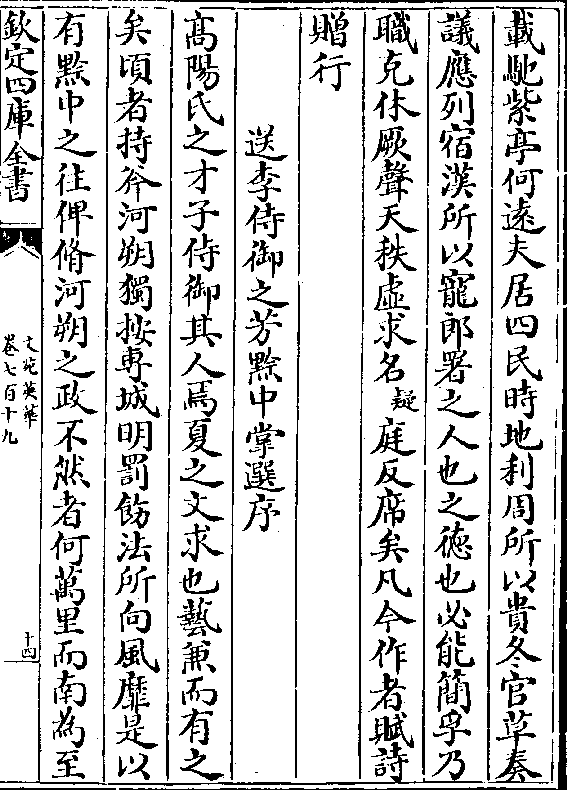 載馳紫亭何遠夫居四民時地利周所以貴冬官草奏
議應列宿漢所以寵郎署之人也之德也必能簡孚乃
職克休厥聲天秩虛求名疑庭反席矣凡今作者賦詩
贈行
送李侍御之芳黔中掌選序
髙陽氏之才子侍御其人焉夏之文求也藝兼而有之
矣頃者持斧河朔獨按専城明罰飭法所向風靡是以
有黔中之往俾脩河朔之政不然者何萬里而南為至
欽定四庫全書
文苑英華
卷七百十九
十四